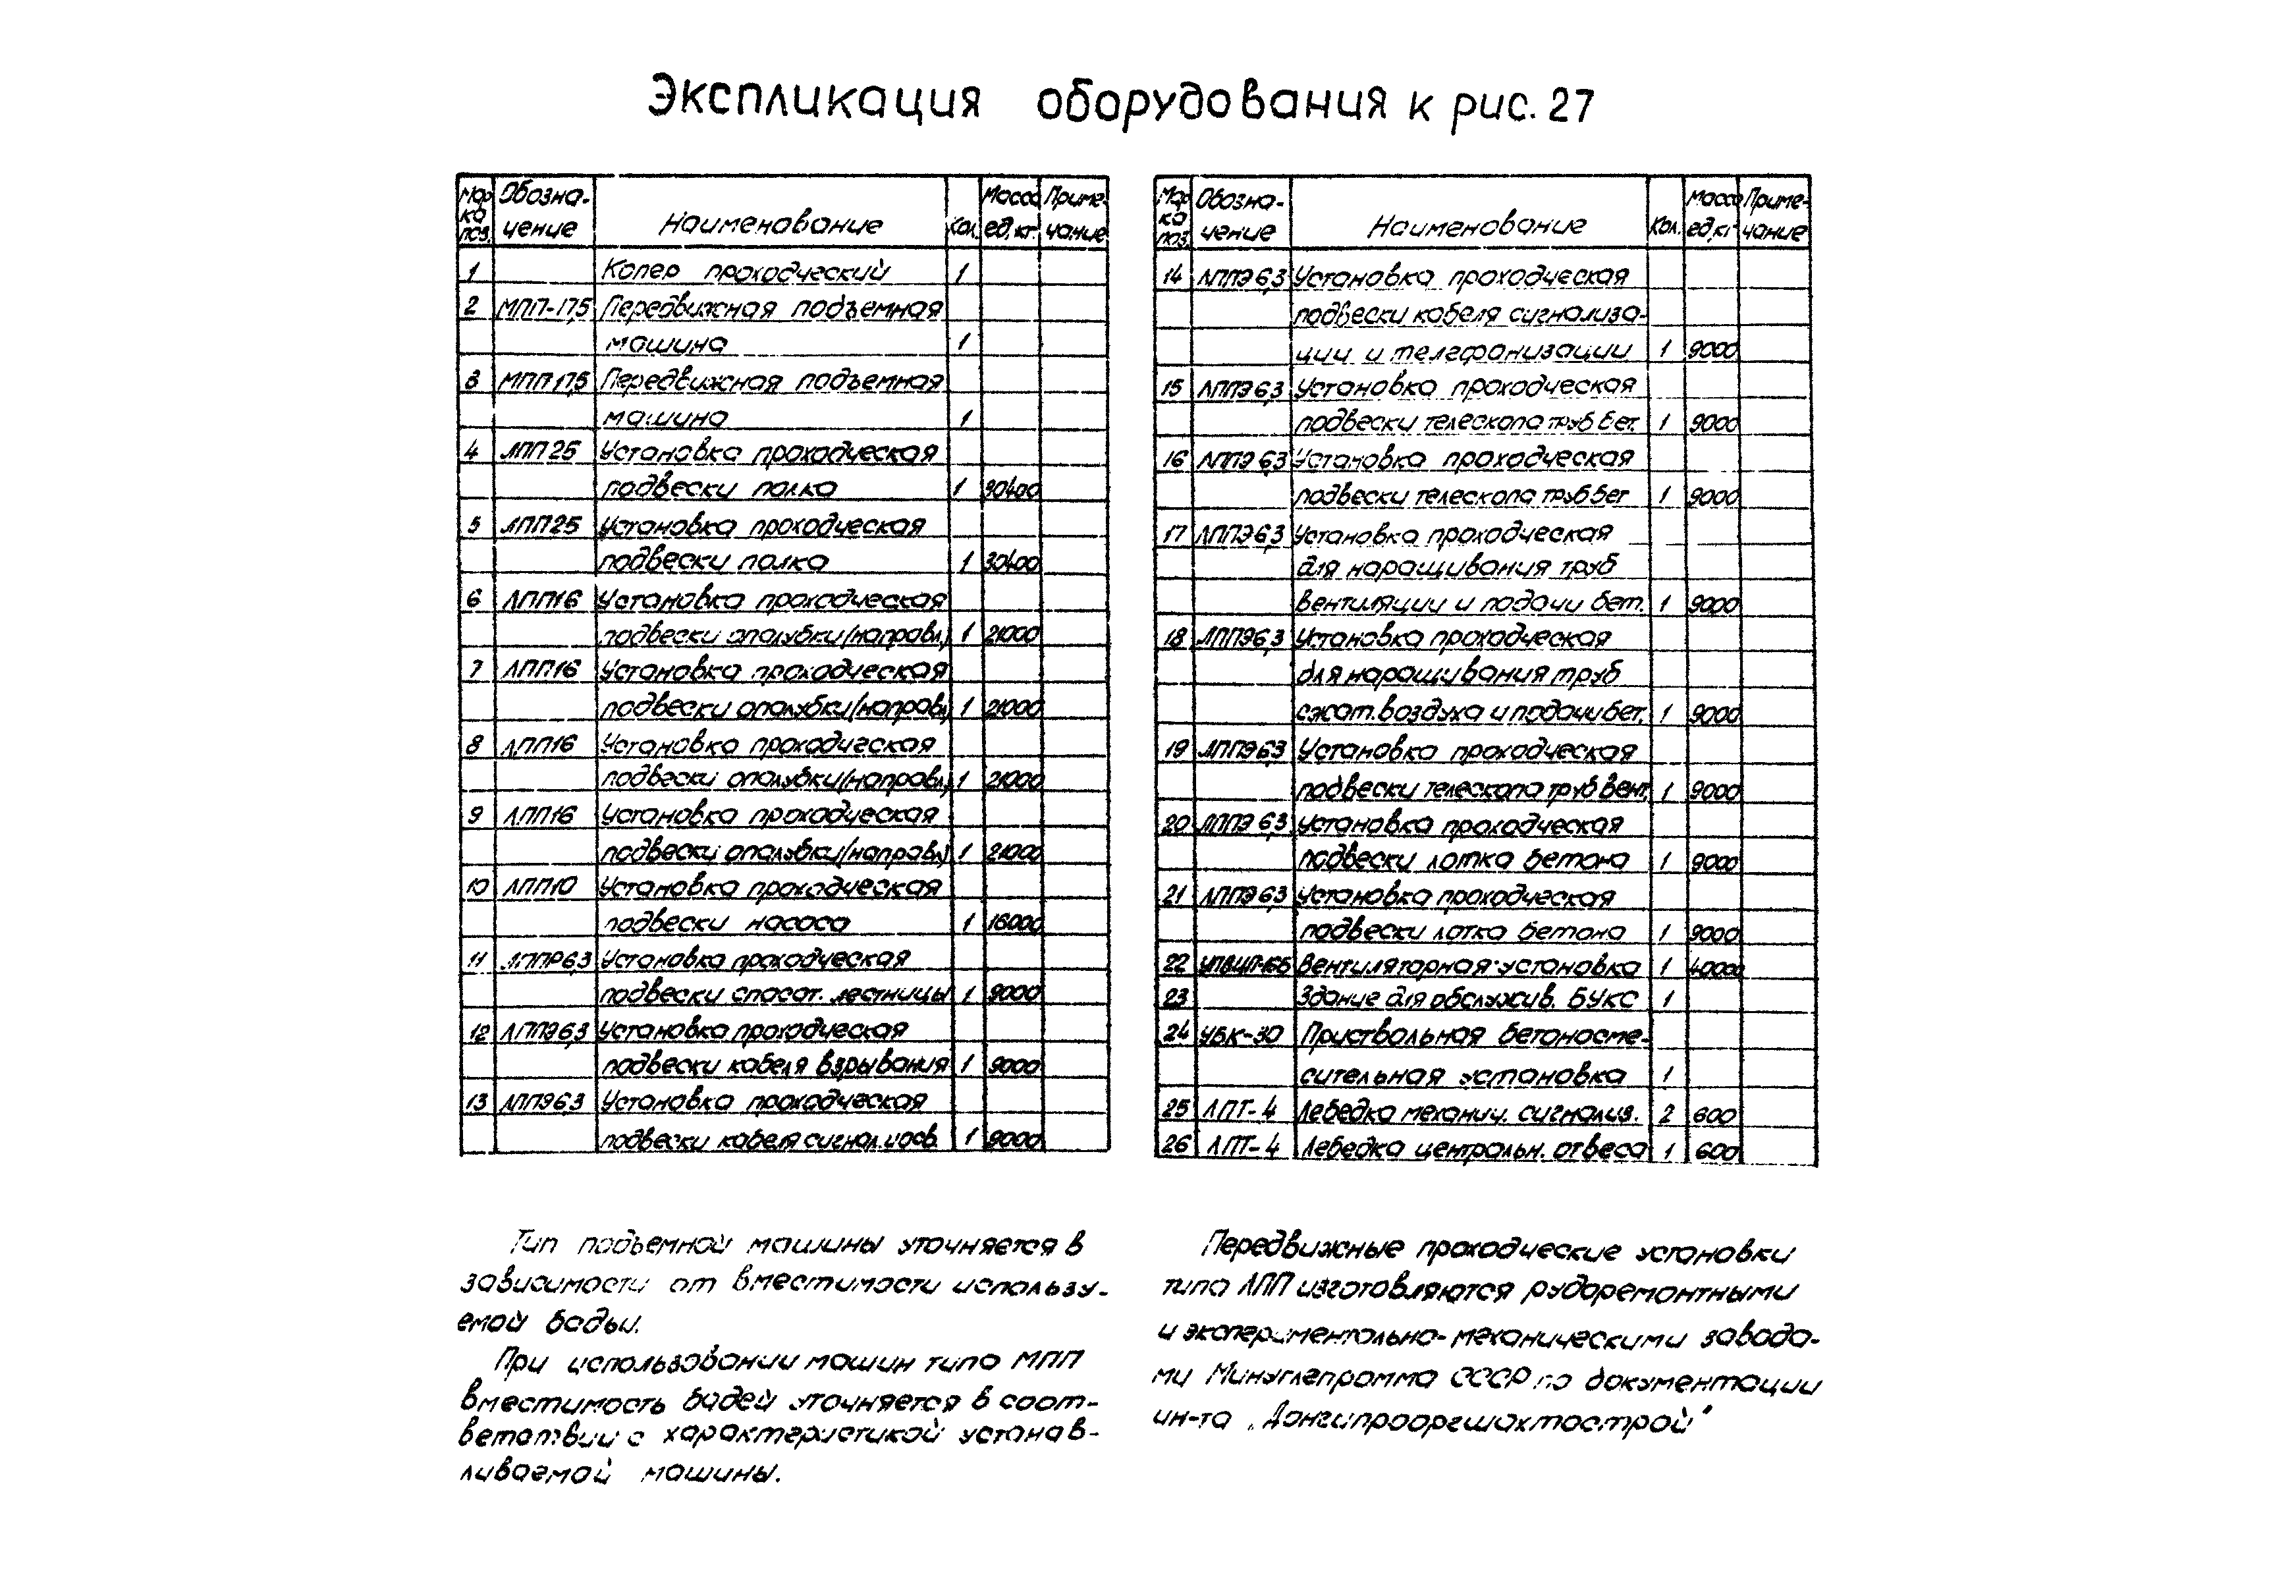 Экспликация оборудования к рис. 27
Мар Обозна- Масса Приме-
ка
поз. чение Наименование Кол. ед, кг. чание
1 Копер проходческий 1
2 МПП-17,5 Передвижная подъемная
машина 1
3 МПП 17,5 Передвижная подъемная
машина 1
4 ЛПП 25 Установка проходческая
подвески полка 1 30400
5 ЛПП 25 Установка проходческая
подвески полка 1 30400
6 ЛПП16 Установка проходческая
подвески опалубки/направл) 1 21000
7 ЛПП16 Установка проходческая
подвески опалубки/направл) 1 21000
8 ЛПП16 Установка проходческая
подвески опалубки/направл) 1 21000
9 ЛПП16 Установка проходческая
подвески опалубки/направл) 1 21000
10 ЛПП10 Установка проходческая
подвески насоса 1 16000
11 ЛППР6,3 Установка проходческая
подвески спасат. лестницы 1 9000
12 ЛППЭ6,3 Установка проходческая
подвески кабеля взрывания 1 9000
13 ЛППЭ6,3 Установка проходческая
подвески кабеля сигнал. и осв. 1 9000
Мар Обозна- Масса Приме-
ка
поз. чение Наименование Кол. ед, кг чание
14 ЛППЭ 6,3 Установка проходческая
подвески кабеля сигнализа-
ции и телефонизации 1 9000
15 ЛППЭ 6,3 Установка проходческая
подвески телескопа труб бет. 1 9000
16 ЛППЭ 6,3 Установка проходческая
подвески телескопа труб бет 1 9000
17 ЛППЭ 6,3 Установка проходческая
для наращивания труб
вентиляции и подачи бет. 1 9000
18 ЛППЭ6,3 Установка проходческая
для наращивания труб
сжат. воздуха и подачи бет. 1 9000
19 ЛППЭ 6,3 Установка проходческая
подвески телескопа труб вент. 1 9000
20 ЛППЭ 6,3 Установка проходческая
подвески лотка бетона 1 9000
21 ЛППЭ 6,3 Установка проходческая
подвески лотка бетона 1 9000
22 Вентиляторная установка 1 40000
23 Здание для обслужив. БУКС 1
24 УБК-30 Приствольная бетоносме-
сительная установка 1
25 ЛПТ-4 Лебедка механич. сигнализ. 2 600
26 ЛПТ-4 Лебедка центральн. отвеса 1 600
Тип подъемной машины уточняется в
зависимости от вместимости использу-
емой бадьи.
При использовании машин типа МПП
вместимость бадей уточняется в соот-
ветствии с характеристикой устанав-
ливаемой машины.
Передвижные проходческие установки
типа ЛПП изготовляются рудоремонтными
и экспериментально-механическими завода-
ми Минуглепромма СССР по документации
ин-та „Донгипрооргшахтострой"